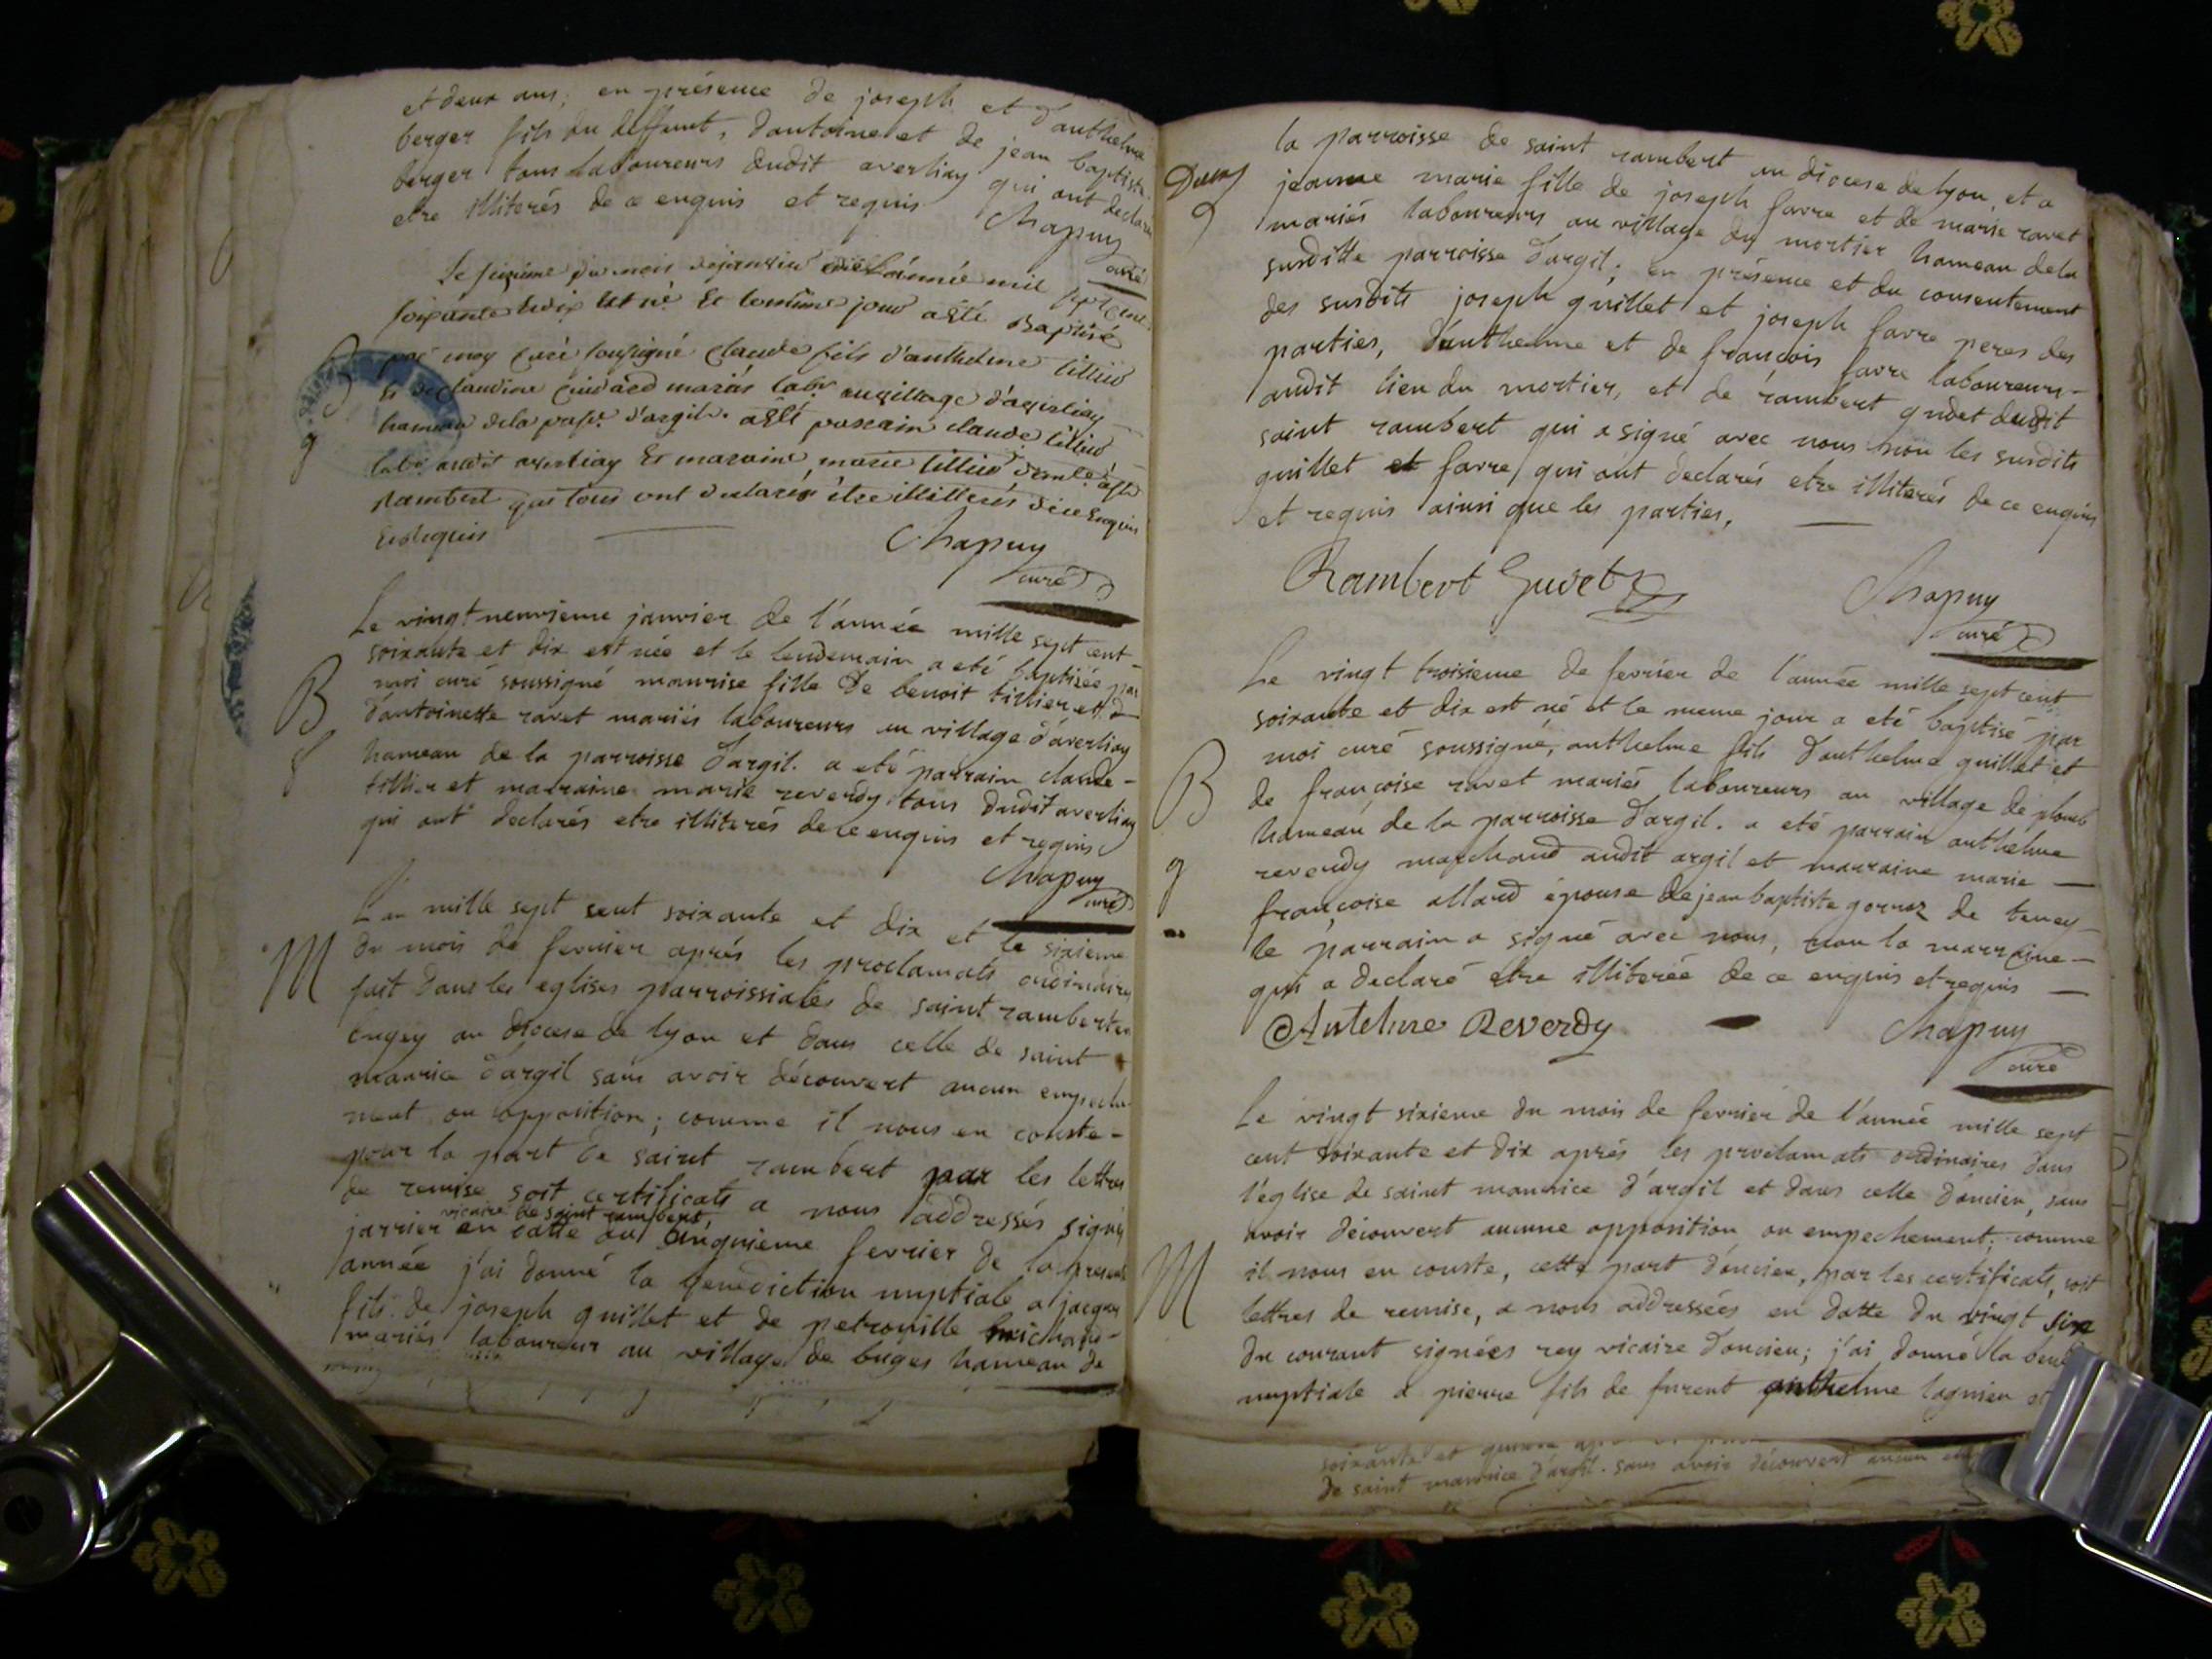 et deux ans; en présence de joseph et d'anthelme
berger fils du deffunt, d'antoine et de jean baptiste
berger tous laboureurs dudit averliay qui ont declaré
etre illiterés de ce enquis et requis
Chapuy
curé
Le seizieme du mois de janvier de l'année mil sept cent
soixante et dix est né et le même jour a été Baptisé
par moy curé soussigné claude fils d'anthelme tillier
et de claudine mariés labr. au village d'averliay
hameau de la parse. d'argil. a été parrain claude tillier
labr. audit averliay et maraine marie tillier de st
Rambert qui tous ont declarés être illitterés de ce enquis
et requis
Chapuy
curé
Le vingt neuvieme janvier de l'année mille sept cent
soixante et dix est née et le lendemain a eté baptisée par
moi curé soussigné maurise fille de benoit tillier et
B
d'antoinette ravet mariés laboureurs au village d'averliay
f
hameau de la parroisse d'argil. a eté parrain claude
tillier et marraine marie reverdy, tous dudit averliay
qui ont declarés etre illiterés de ce enquis et requis
Chapuy
curé
L'an mille sept cent soixante et dix et le sixieme
M
du mois de fevrier aprés les proclamats ordinaires
fait dans les eglises parroissiales de saint rambert en
bugey au diocese de lyon et dans celle de saint
maurice d'argil sans avoir découvert aucun empeche
ment ou opposition; comme il nous en conste
pour la part de saint rambert par les lettres
de remise soit certificats a nous addressés signés
vicaire de saint rambert,
jarrier en datte du cinquieme fevrier de la presente
année j'ai donné la benediction nuptiale a jacques
fils de joseph guillet et de petronille michaud
mariés laboureur au village de buges hameau de
la parroisse de saint rambert au diocese de lyon, et a
jeanne marie fille de joseph favre et de marie ravet
mariés laboureurs au village du mortier hameau de la
susditte parroisse d'argil; en présence et du consentement
des susdits joseph guillet et joseph favre peres des
parties, d'anthelme et de françois favre laboureurs
audit lieu du mortier, et de rambert gudet dudit
saint rambert qui a signé avec nous non les susdits
guillet et favre qui ont declarés etre illiterés de ce enquis
et requis ainsi que les parties,
Rambert Gudet
Chapuy
curé
Le vingt troisieme de fevrier de l'année mille sept cent
soixante et dix est né et le meme jour a eté baptisé par
moi curé soussigné, anthelme fils d'anthelme guillet et
B
de françoise ravet mariés laboureurs au village de plomb
hameau de la parroisse d'argil. a eté parrain anthelme
g
reverdy marchand audit argil et marraine marie
françoise allard épouse de jean baptiste gornoz de tenay
le parrain a signé avec nous, non la marraine
qui a declaré etre illiterée de ce enquis et requis
Antelme Reverdy
Chapuy
curé
Le vingt sixieme du mois de fevrier de l'année mille sept
cent soixante et dix aprés les proclamats ordinaires dans
l'eglise de saint maurice d'argil et dans celle d'oncieu, sans
avoir découvert aucune opposition ou empechement; comme
M
il nous en conste, cette part d'oncieu, par les certificats, soit
lettres de remise, a nous addressées en datte du vingt six
du courant signées rey vicaire d'oncieu; j'ai donné la
nuptiale a pierre fils de furent anthelme lagnieu et
soixante et
de saint maurice d'argil. sans avoir découvert aucun